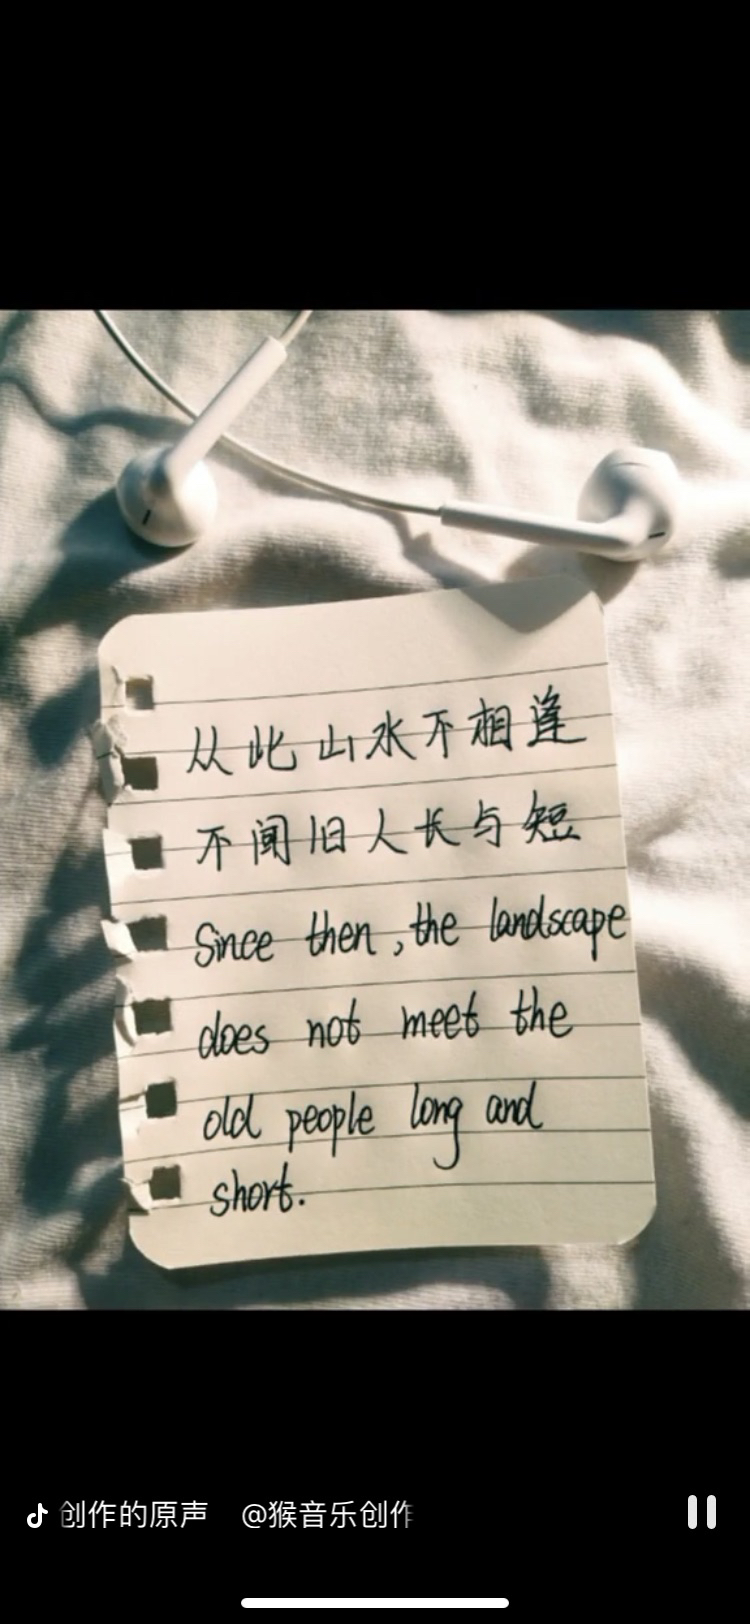 从此山水不相逢
不闻旧人长与短
Since then, the landscape
does not meet the
old people long and
short.
创作的原声 @猴音乐创作